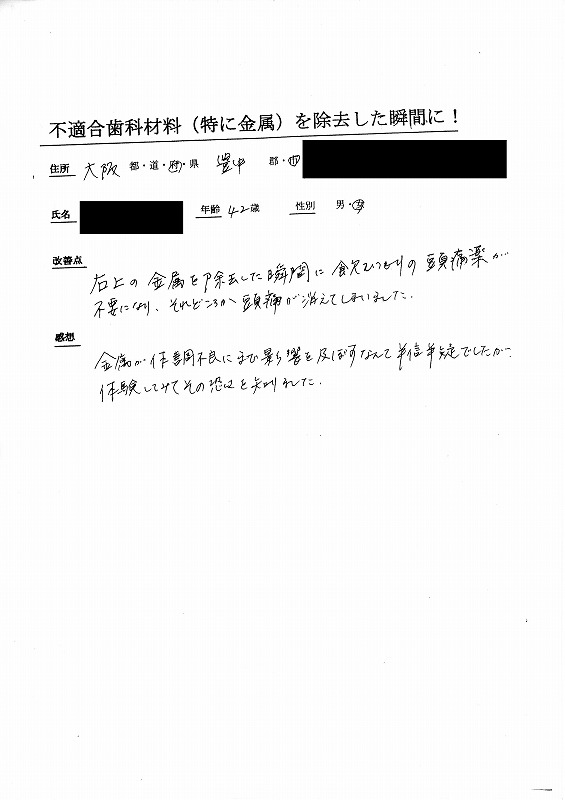 不適合歯科材料（特に金属）を除去した瞬間に！
住所 大阪 都・道・府・県 豊中 郡・市
氏名 年齢 42歳 性別 男・女
改善点
右上の金属を除去した瞬間に飲むつもりの頭痛薬が
不要になり、それどころか頭痛が消えてしまいました。
感想
金属が体調不良にまで影響を及ぼすなんて半信半疑でしたが、
体験してみてその恐さを知りました。